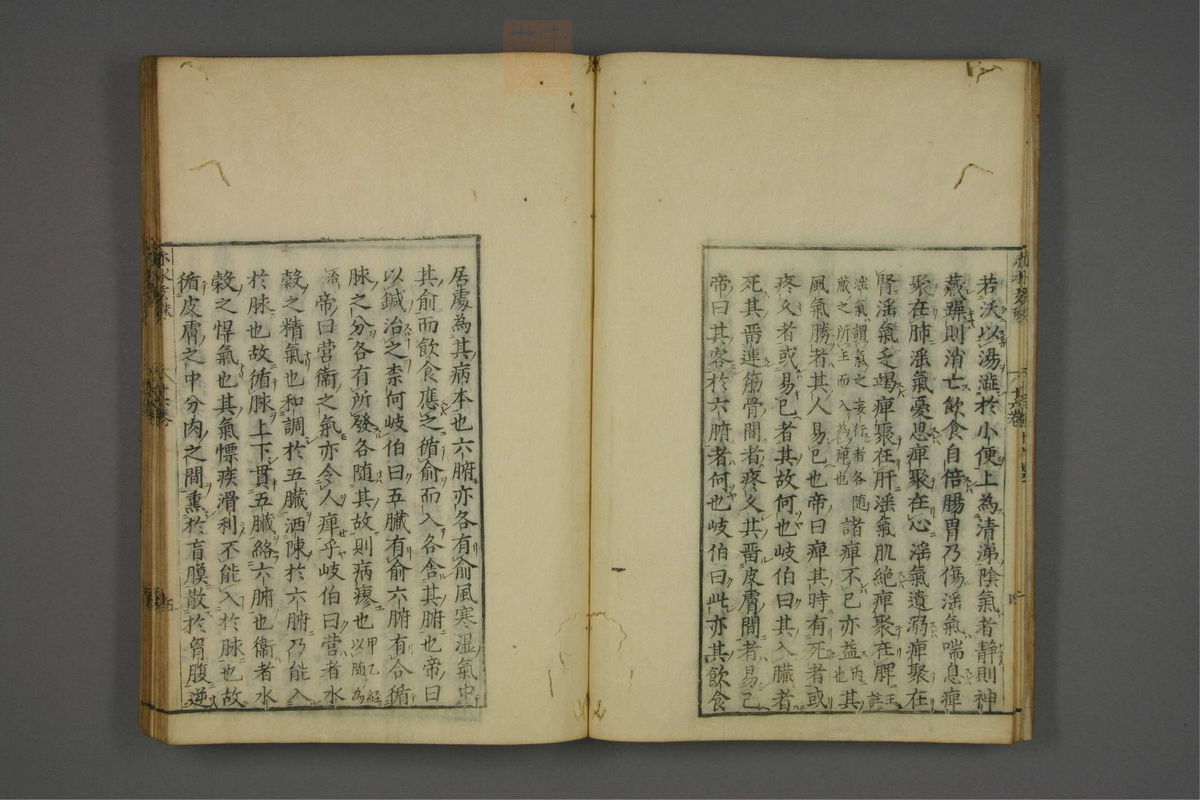 若沃以湯澁於小便上為清涕陰氣者静則神
藏躁則消亡飲食自倍腸胃乃傷滛氣喘息痺
聚在肺滛氣憂思痺聚在心滛氣遺溺痺聚在
腎滛氣乏竭痺聚在肝滛氣肌絶痺聚在脾王註
滛氣謂氣之妄行者各随
藏之所主而入為痺也諸痺不已亦益内其
風氣勝者其人易已也帝曰痺其時有死者或
疼乆者或易已者其故何也岐伯曰其入臓者
死其畱連筋骨間者疼乆其畱皮膚間者易已
帝曰其客於六腑者何也岐伯曰此亦其飲食
居處為其病本也六腑亦各有俞風寒湿氣中
其俞而飲食應之循俞而入各舎其腑也帝曰
以鍼治之柰何岐伯曰五臓有俞六腑有合循
脉之分各有所發各随其故則病瘳也甲乙經
以随為
治帝曰営衛之氣亦令人痺乎岐伯曰営者水
穀之精氣也和調於五臓洒陳於六腑乃能入
於脉也故循脉上下貫五臓絡六腑也衛者水
穀之悍氣也其氣慓疾滑利不能入於脉也故
循皮膚之中分肉之間熏於肓膜散於胷腹逆